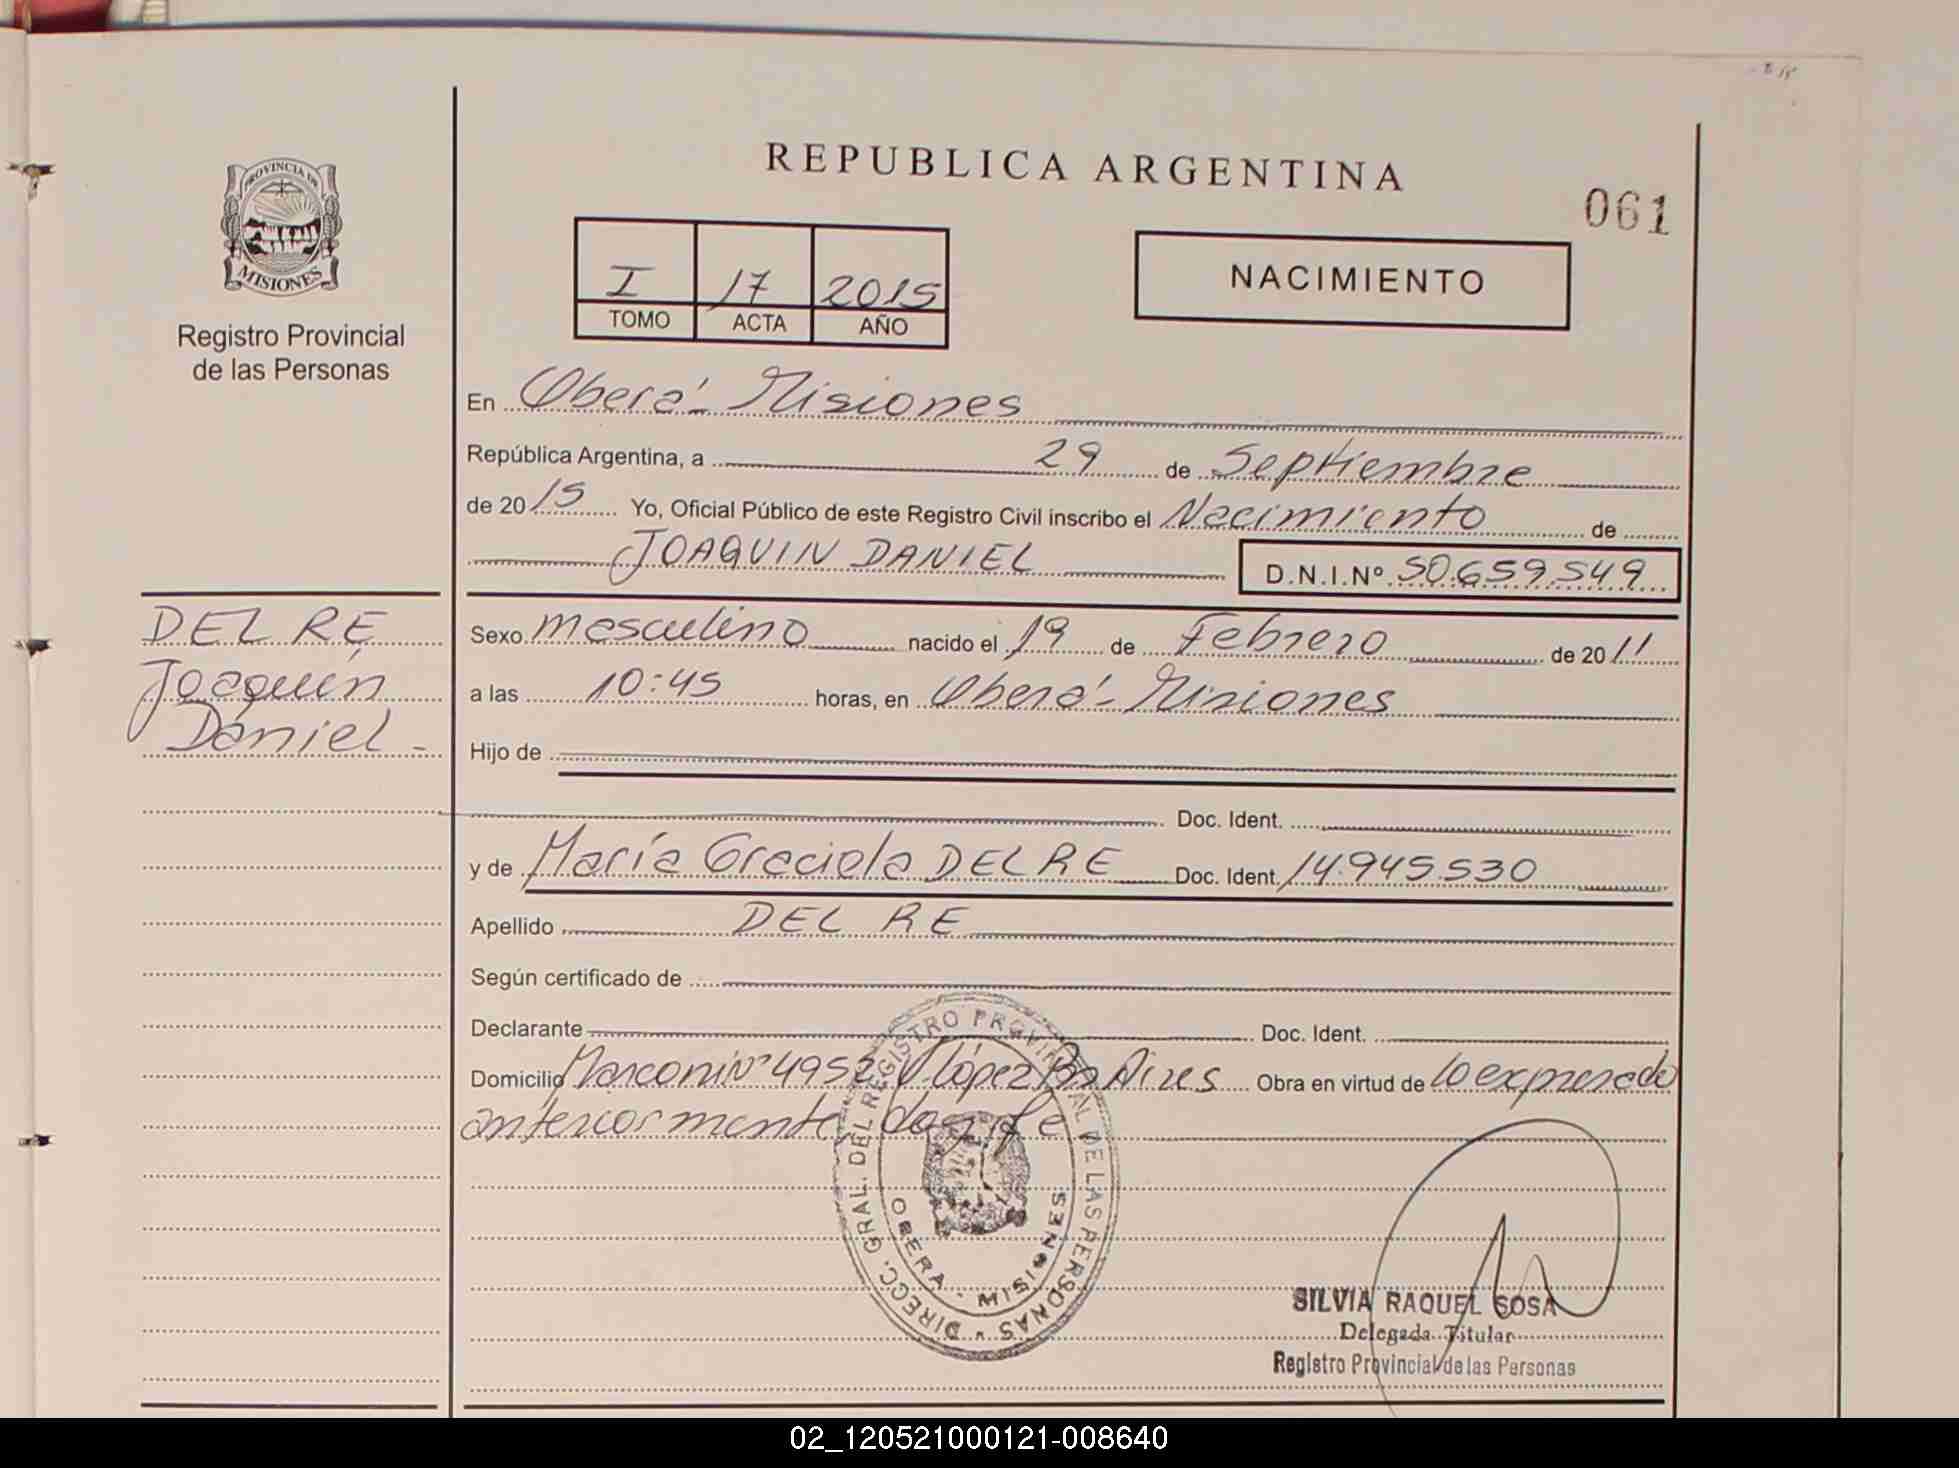 REPUBLICA ARGENTINA
061
PROVINCIA DE
MISIONES
Registro Provincial
de las Personas
I 17 2015
TOMO ACTA AÑO
NACIMIENTO
En Oberá - Misiones
República Argentina, a 29 de Septiembre
de 2015 Yo, Oficial Público de este Registro Civil inscribo el Nacimiento de
JOAQUIN DANIEL D.N.I.Nº 50.659.549
DEL RE
Joaquín
Daniel -
Sexo masculino nacido el 19 de Febrero de 2011
a las 10:45 horas, en Oberá - Misiones
Hijo de
Doc. Ident.
y de María Graciela DEL RE Doc. Ident. 14.945.530
Apellido DEL RE
Según certificado de
Declarante Doc. Ident.
Domicilio Marconi Nº 4952 V López Bs Aires Obra en virtud de lo expresado
anteriormente doy fe
DIRECC. GRAL. DEL REGISTRO PROVINCIAL DE LAS PERSONAS
OBERA - MISIONES
SILVIA RAQUEL SOSA
Delegada Titular
Registro Provincial de las Personas
02_120521000121-008640